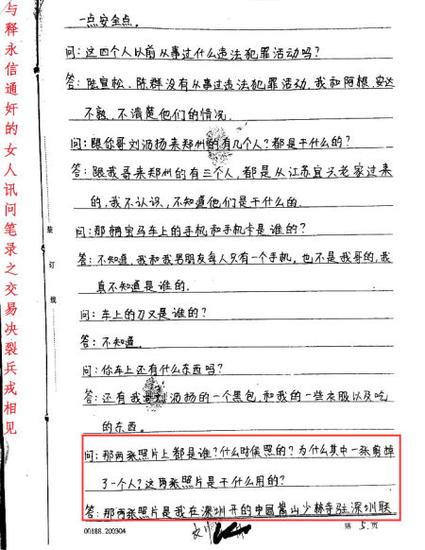 与释永信通奸的女人讯问笔录之交易决裂兵戎相见
一点安全点。
问:这四个人以前从事过什么违法犯罪活动吗?
答:陆宜松、陈群没有从事过违法犯罪活动,我和阿根、安达
不熟,不清楚他们的情况.
问:跟你哥刘沥扬来郑州的有几个人?都是干什么的?
答:跟我哥来郑州的有三个人,都是从江苏宜兴老家过来
的,我不认识,不知道他们是干什么的.
问:那辆宝马车上的手机和手机卡是谁的?
答:不知道,我和我男朋友每人只有一个手机,也不是我哥的,我
真不知道是谁的.
问:车上的刀又是谁的?
答:不知道.
问:你车上还有什么东西吗?
答:还有我哥刘沥扬的一个黑包,和我的一些衣服以及吃
的东西。
问:那两张照片上都是谁?什么时候照的?为什么其中一张剪掉
了一个人?这两张照片是干什么用的?
答:那两张照片是我在深圳开的中国嵩山少林寺驻深圳联
装订线
00188.200304
第5页